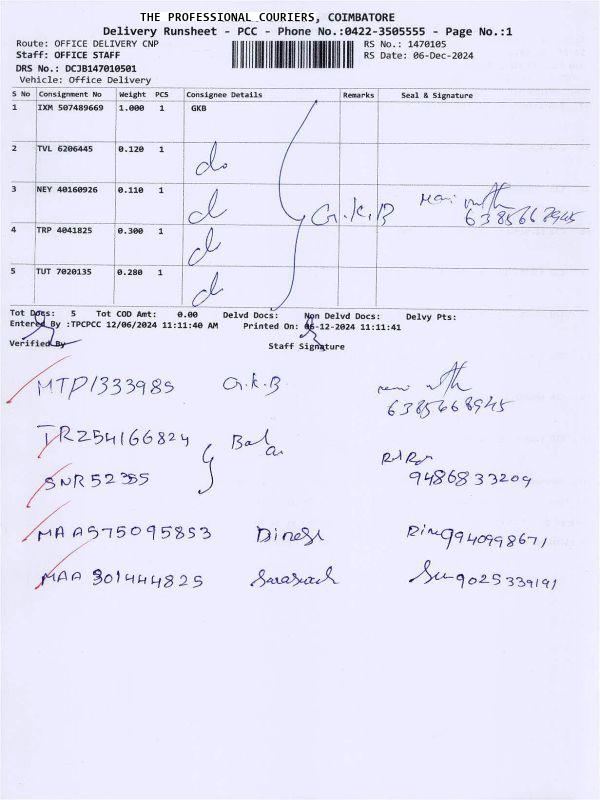 THE PROFESSIONAL COURIERS, COIMBATORE
Delivery Runsheet - PCC - Phone No.:0422-3505555 - Page No.:1
Route: OFFICE DELIVERY CNP RS No.: 1470105
Staff: OFFICE STAFF RS Date: 06-Dec-2024
DRS No.: DCJB147010501
Vehicle: Office Delivery
S No Consignment No Weight PCS Consignee Details Remarks Seal & Signature
1 IXM 507489669 1.000 1 GKB
2 TVL 6206445 0.120 1 do
3 NEY 40160926 0.110 1 d G.K.B 6385668945
4 TRP 4041825 0.300 1 d
5 TUT 7020135 0.280 1 d
Tot Docs: 5 Tot COD Amt: 0.00 Delvd Docs: Non Delvd Docs: Delvy Pts:
Entered By :TPCPCC 12/06/2024 11:11:40 AM Printed On: 06-12-2024 11:11:41
Verified By Staff Signature
MTP1333985 G.K.B
6385668945
TRZ54166824 Bala
SNR52355 9486833209
MAA575095853 Dinesh 9940998671
MAA301444825 9025339191